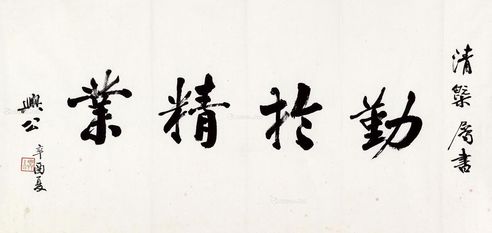 清
屬書
勤於精業
興公
辛酉夏